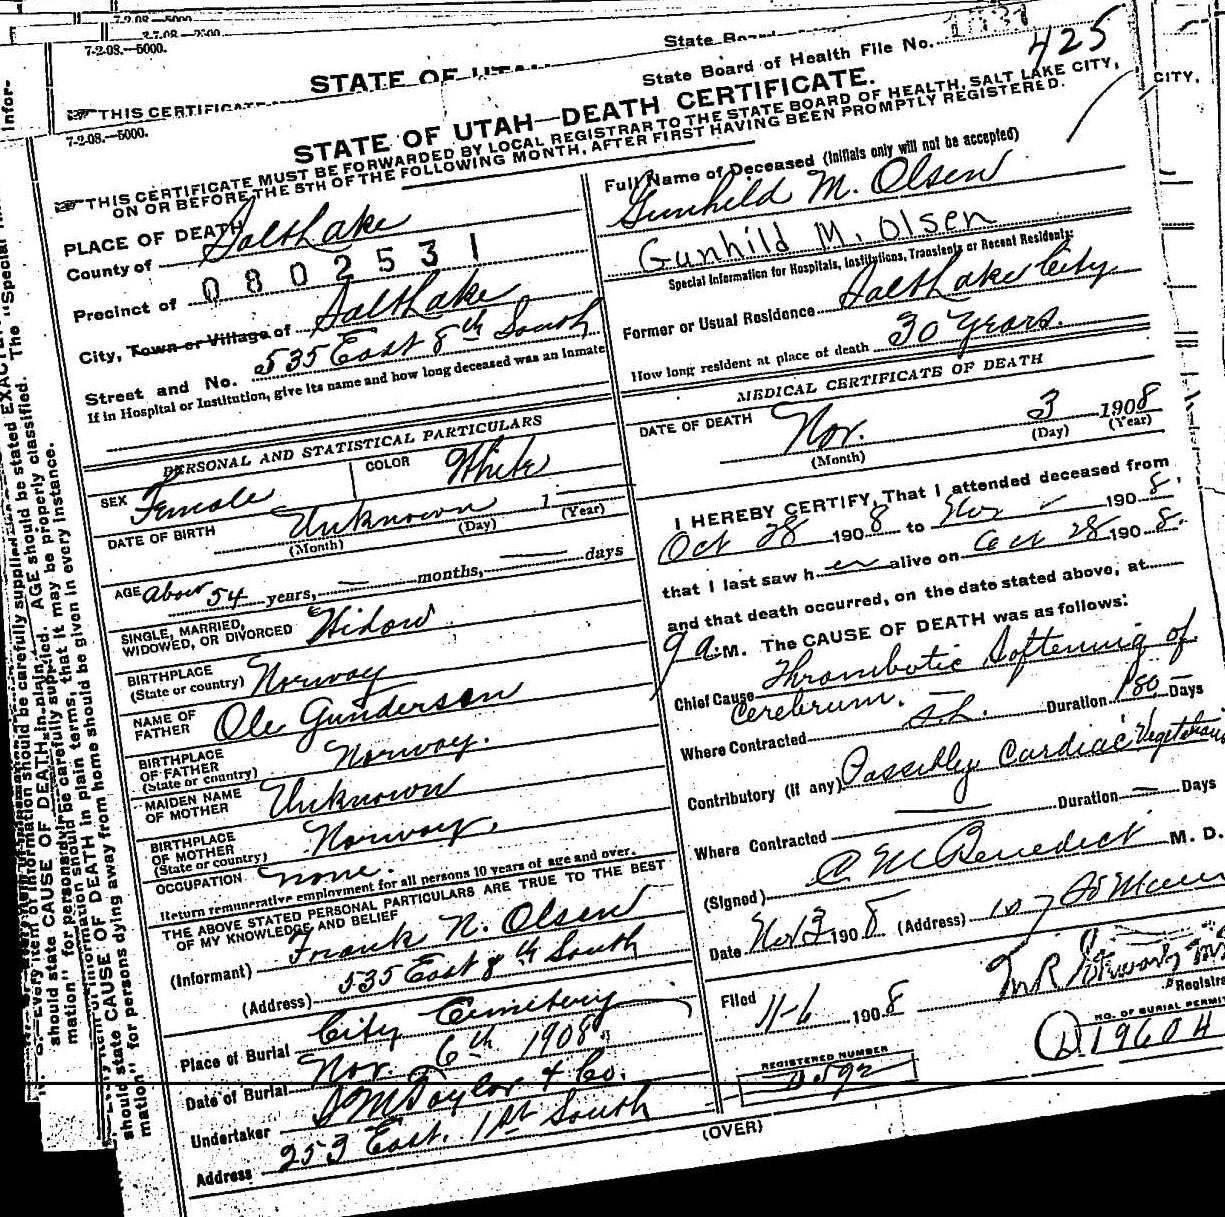 7-2-08.—5000.
7-2-08.—5000.
State Board
STATE OF UTAH
THIS CERTIFICATE
CITY,
7-2-08.—5000.
State Board of Health File No.
425
STATE OF UTAH—DEATH CERTIFICATE.
THIS CERTIFICATE MUST BE FORWARDED BY LOCAL REGISTRAR TO THE STATE BOARD OF HEALTH, SALT LAKE CITY,
ON OR BEFORE THE 5TH OF THE FOLLOWING MONTH, AFTER FIRST HAVING BEEN PROMPTLY REGISTERED.
PLACE OF DEATH
County of Salt Lake
Precinct of 0802531
City, Town or Village of Salt Lake
Street and No. 535 East 8th South
If in Hospital or Institution, give its name and how long deceased was an inmate
PERSONAL AND STATISTICAL PARTICULARS
SEX Female COLOR White
DATE OF BIRTH Unknown 1
(Month) (Day) (Year)
AGE About 54 years, — months, — days
SINGLE, MARRIED,
WIDOWED, OR DIVORCED Widow
BIRTHPLACE
(State or country) Norway
NAME OF
FATHER Ole Gunderson
BIRTHPLACE
OF FATHER
(State or country) Norway.
MAIDEN NAME
OF MOTHER Unknown
BIRTHPLACE
OF MOTHER
(State or country) Norway.
OCCUPATION none.
Return remunerative employment for all persons 10 years of age and over.
THE ABOVE STATED PERSONAL PARTICULARS ARE TRUE TO THE BEST
OF MY KNOWLEDGE AND BELIEF
(Informant) Frank N. Olsen
(Address) 535 East 8th South
Place of Burial City Cemetery
Date of Burial Nov. 6th 1908.
Undertaker S M Taylor & Co.
Address 253 East. 1st South
Full Name of Deceased (Initials only will not be accepted)
Gunhild M. Olsen
Gunhild M. Olsen
Special Information for Hospitals, Institutions, Transients or Recent Residents:
Former or Usual Residence Salt Lake City
How long resident at place of death 30 Years.
MEDICAL CERTIFICATE OF DEATH
DATE OF DEATH Nov. 3 1908
(Month) (Day) (Year)
I HEREBY CERTIFY, That I attended deceased from
Oct 28 1908 to Nov — 1908,
that I last saw her alive on Oct 28 1908.
and that death occurred, on the date stated above, at
9 a.M. The CAUSE OF DEATH was as follows:
Chief Cause Thrombotic Softening of
Cerebrum. Duration 180 Days
Where Contracted S L.
Contributory (if any) Possibly Cardiac Vegetations
Duration — Days
Where Contracted
(Signed) C. M. Benedict M. D.
Date Nov 3 1908 (Address) 107 So Main
Filed 11-6 1908
Registrar
NO. OF BURIAL PERMIT
D 19604
REGISTERED NUMBER
D592
(OVER)
N. B.—Every item of information should be carefully supplied. AGE should be stated EXACTLY.
should state CAUSE OF DEATH in plain terms, that it may be properly classified. The "Special Infor-
mation" for persons dying away from home should be given in every instance.